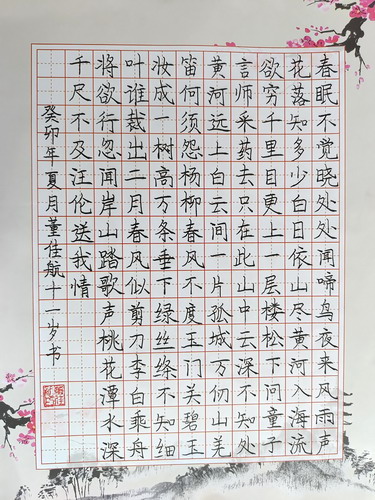 春眠不觉晓处处闻啼鸟夜来风雨声
花落知多少白日依山尽黄河入海流
欲穷千里目更上一层楼松下问童子
言师采药去只在此山中云深不知处
黄河远上白云间一片孤城万仞山羌
笛何须怨杨柳春风不度玉门关碧玉
妆成一树高万条垂下绿丝绦不知细
叶谁裁出二月春风似剪刀李白乘舟
将欲行忽闻岸山踏歌声桃花潭水深
千尺不及汪伦送我情
癸卯年夏月董佳航十一岁书